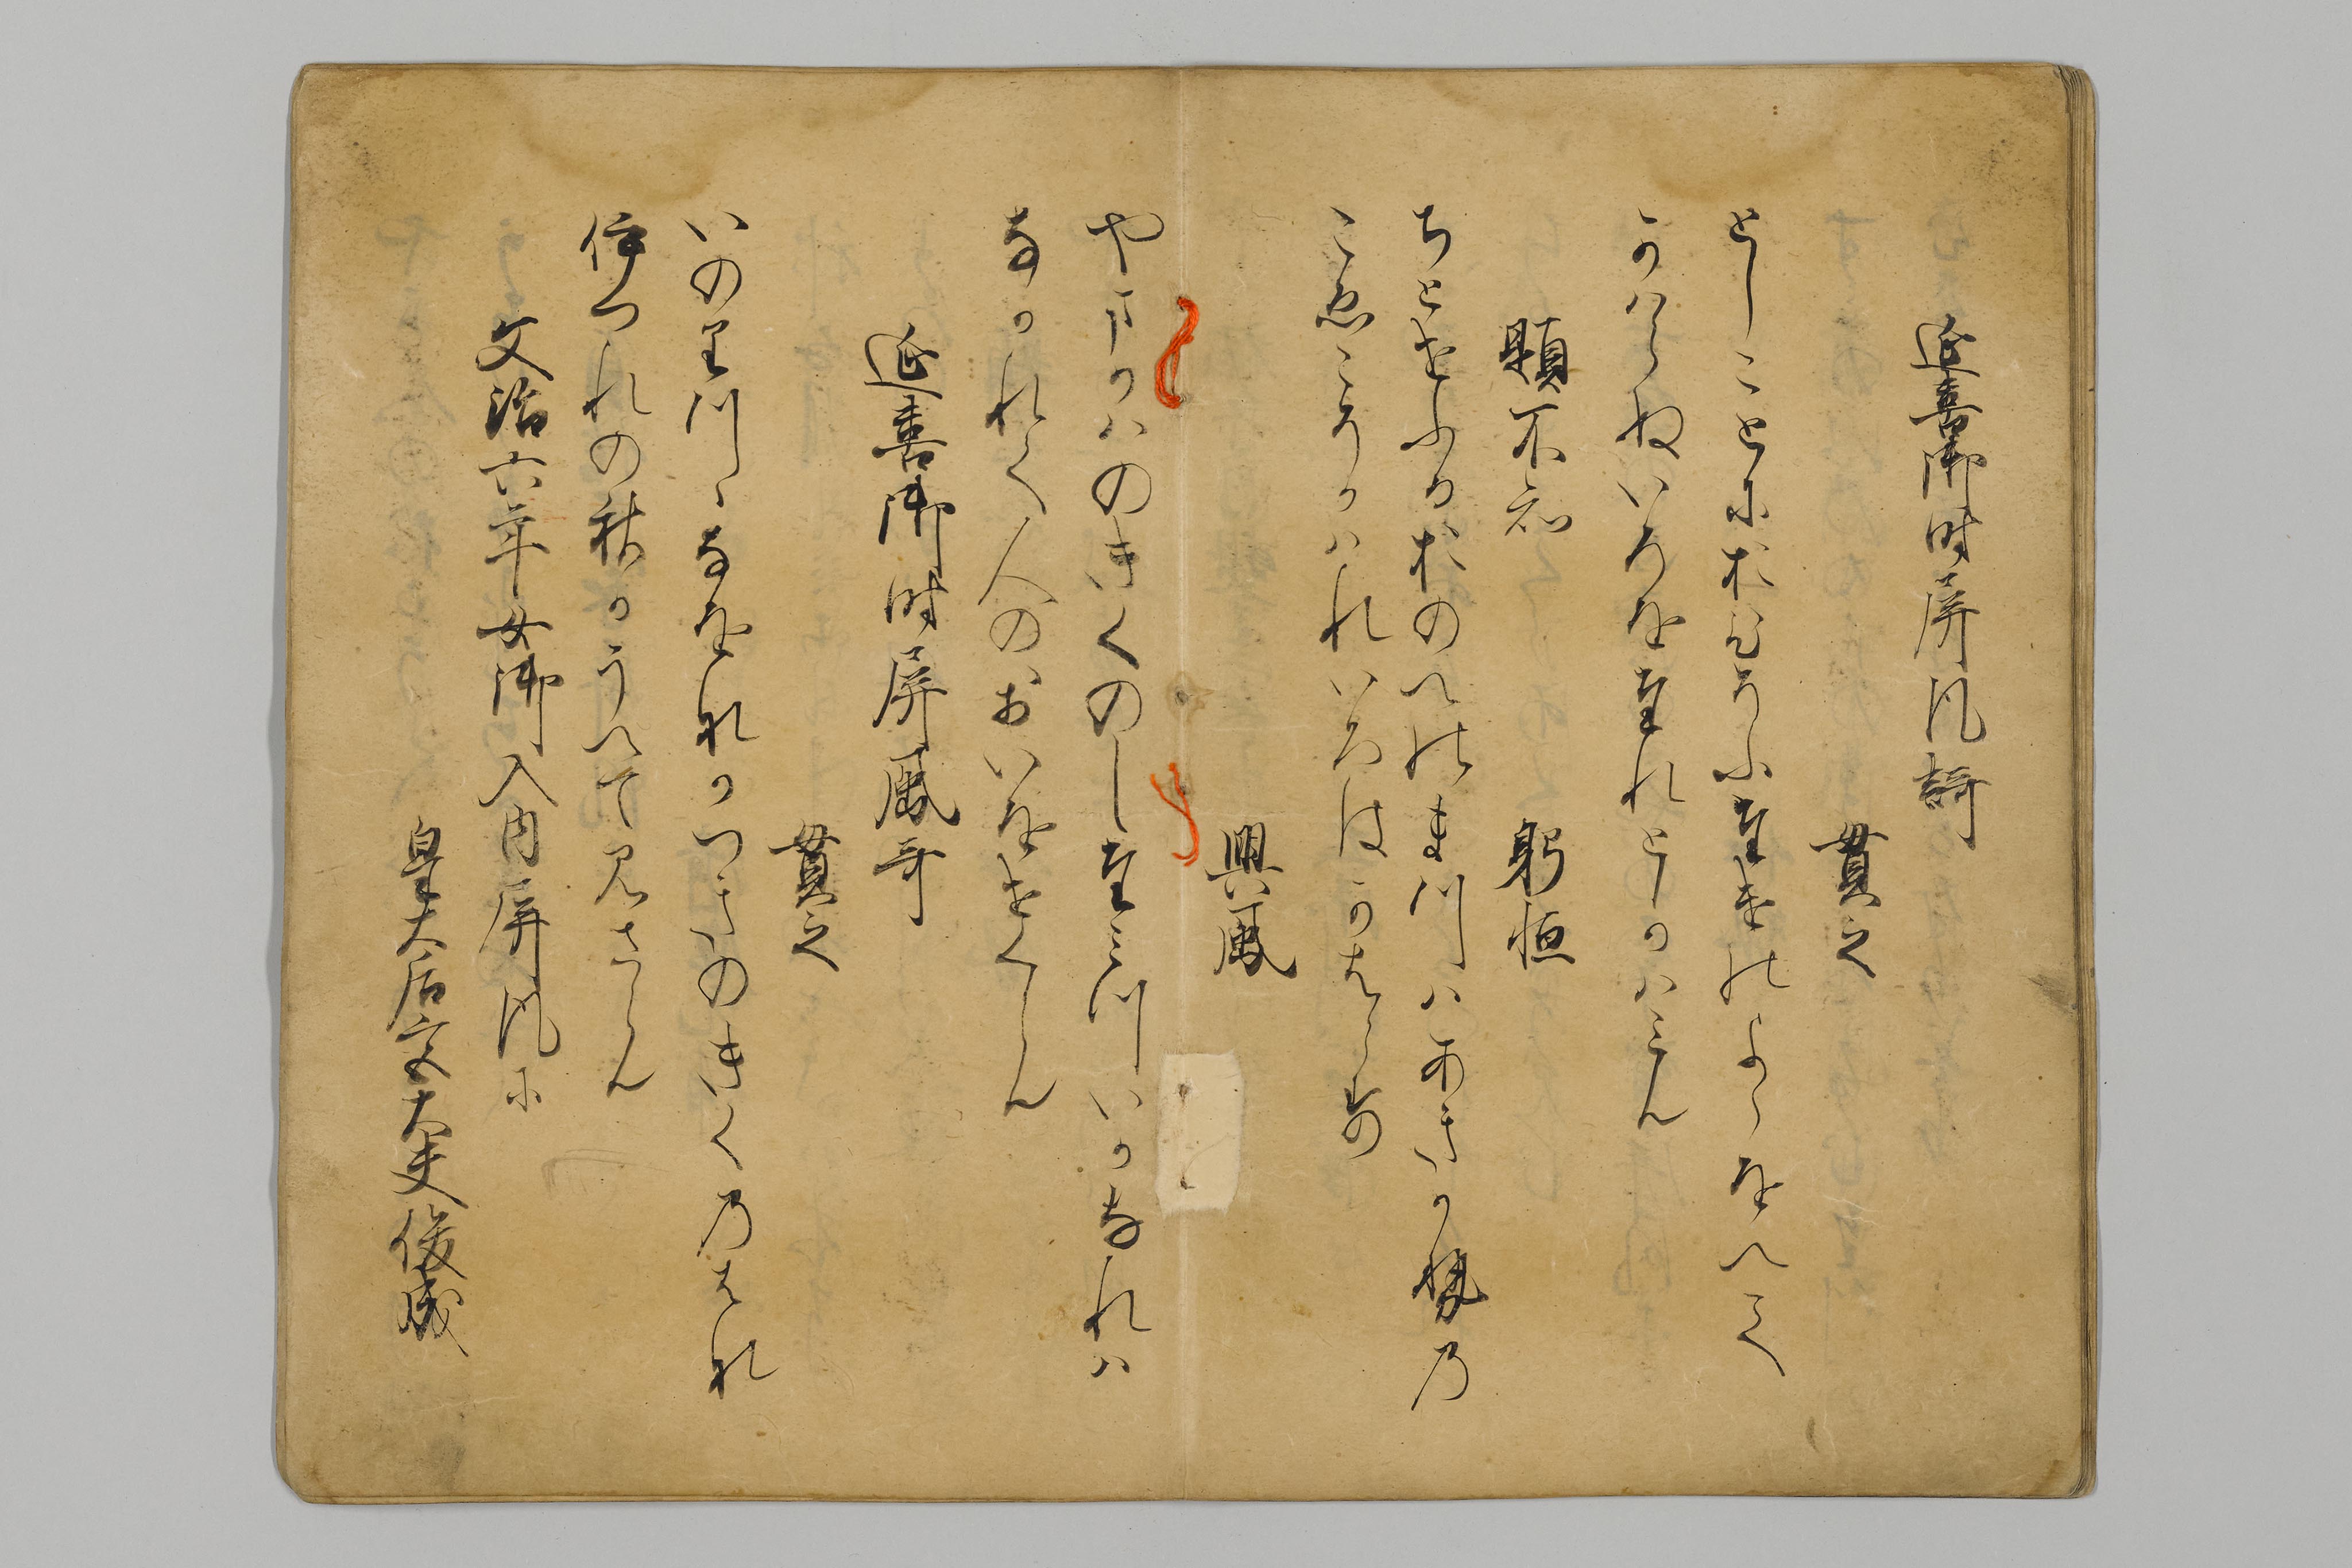 延喜御時屏風謌
貫之
としことにおひそふたけのよゝをへて
かはらぬいろをたれとかはみん
題不知　躬恒
ちとせふるおのへのまつはあきかせの
こゑこそかはれいろはかはらす
興風
やまかはのきくのしたみついかなれは
なかれて人のおいをせくらん
延喜御時屏風哥
貫之
いのりつゝなをなかつきのきくのはな
いつれの秋かうへて見さらん
文治六年女御入内屏風に
皇太后宮大夫俊成